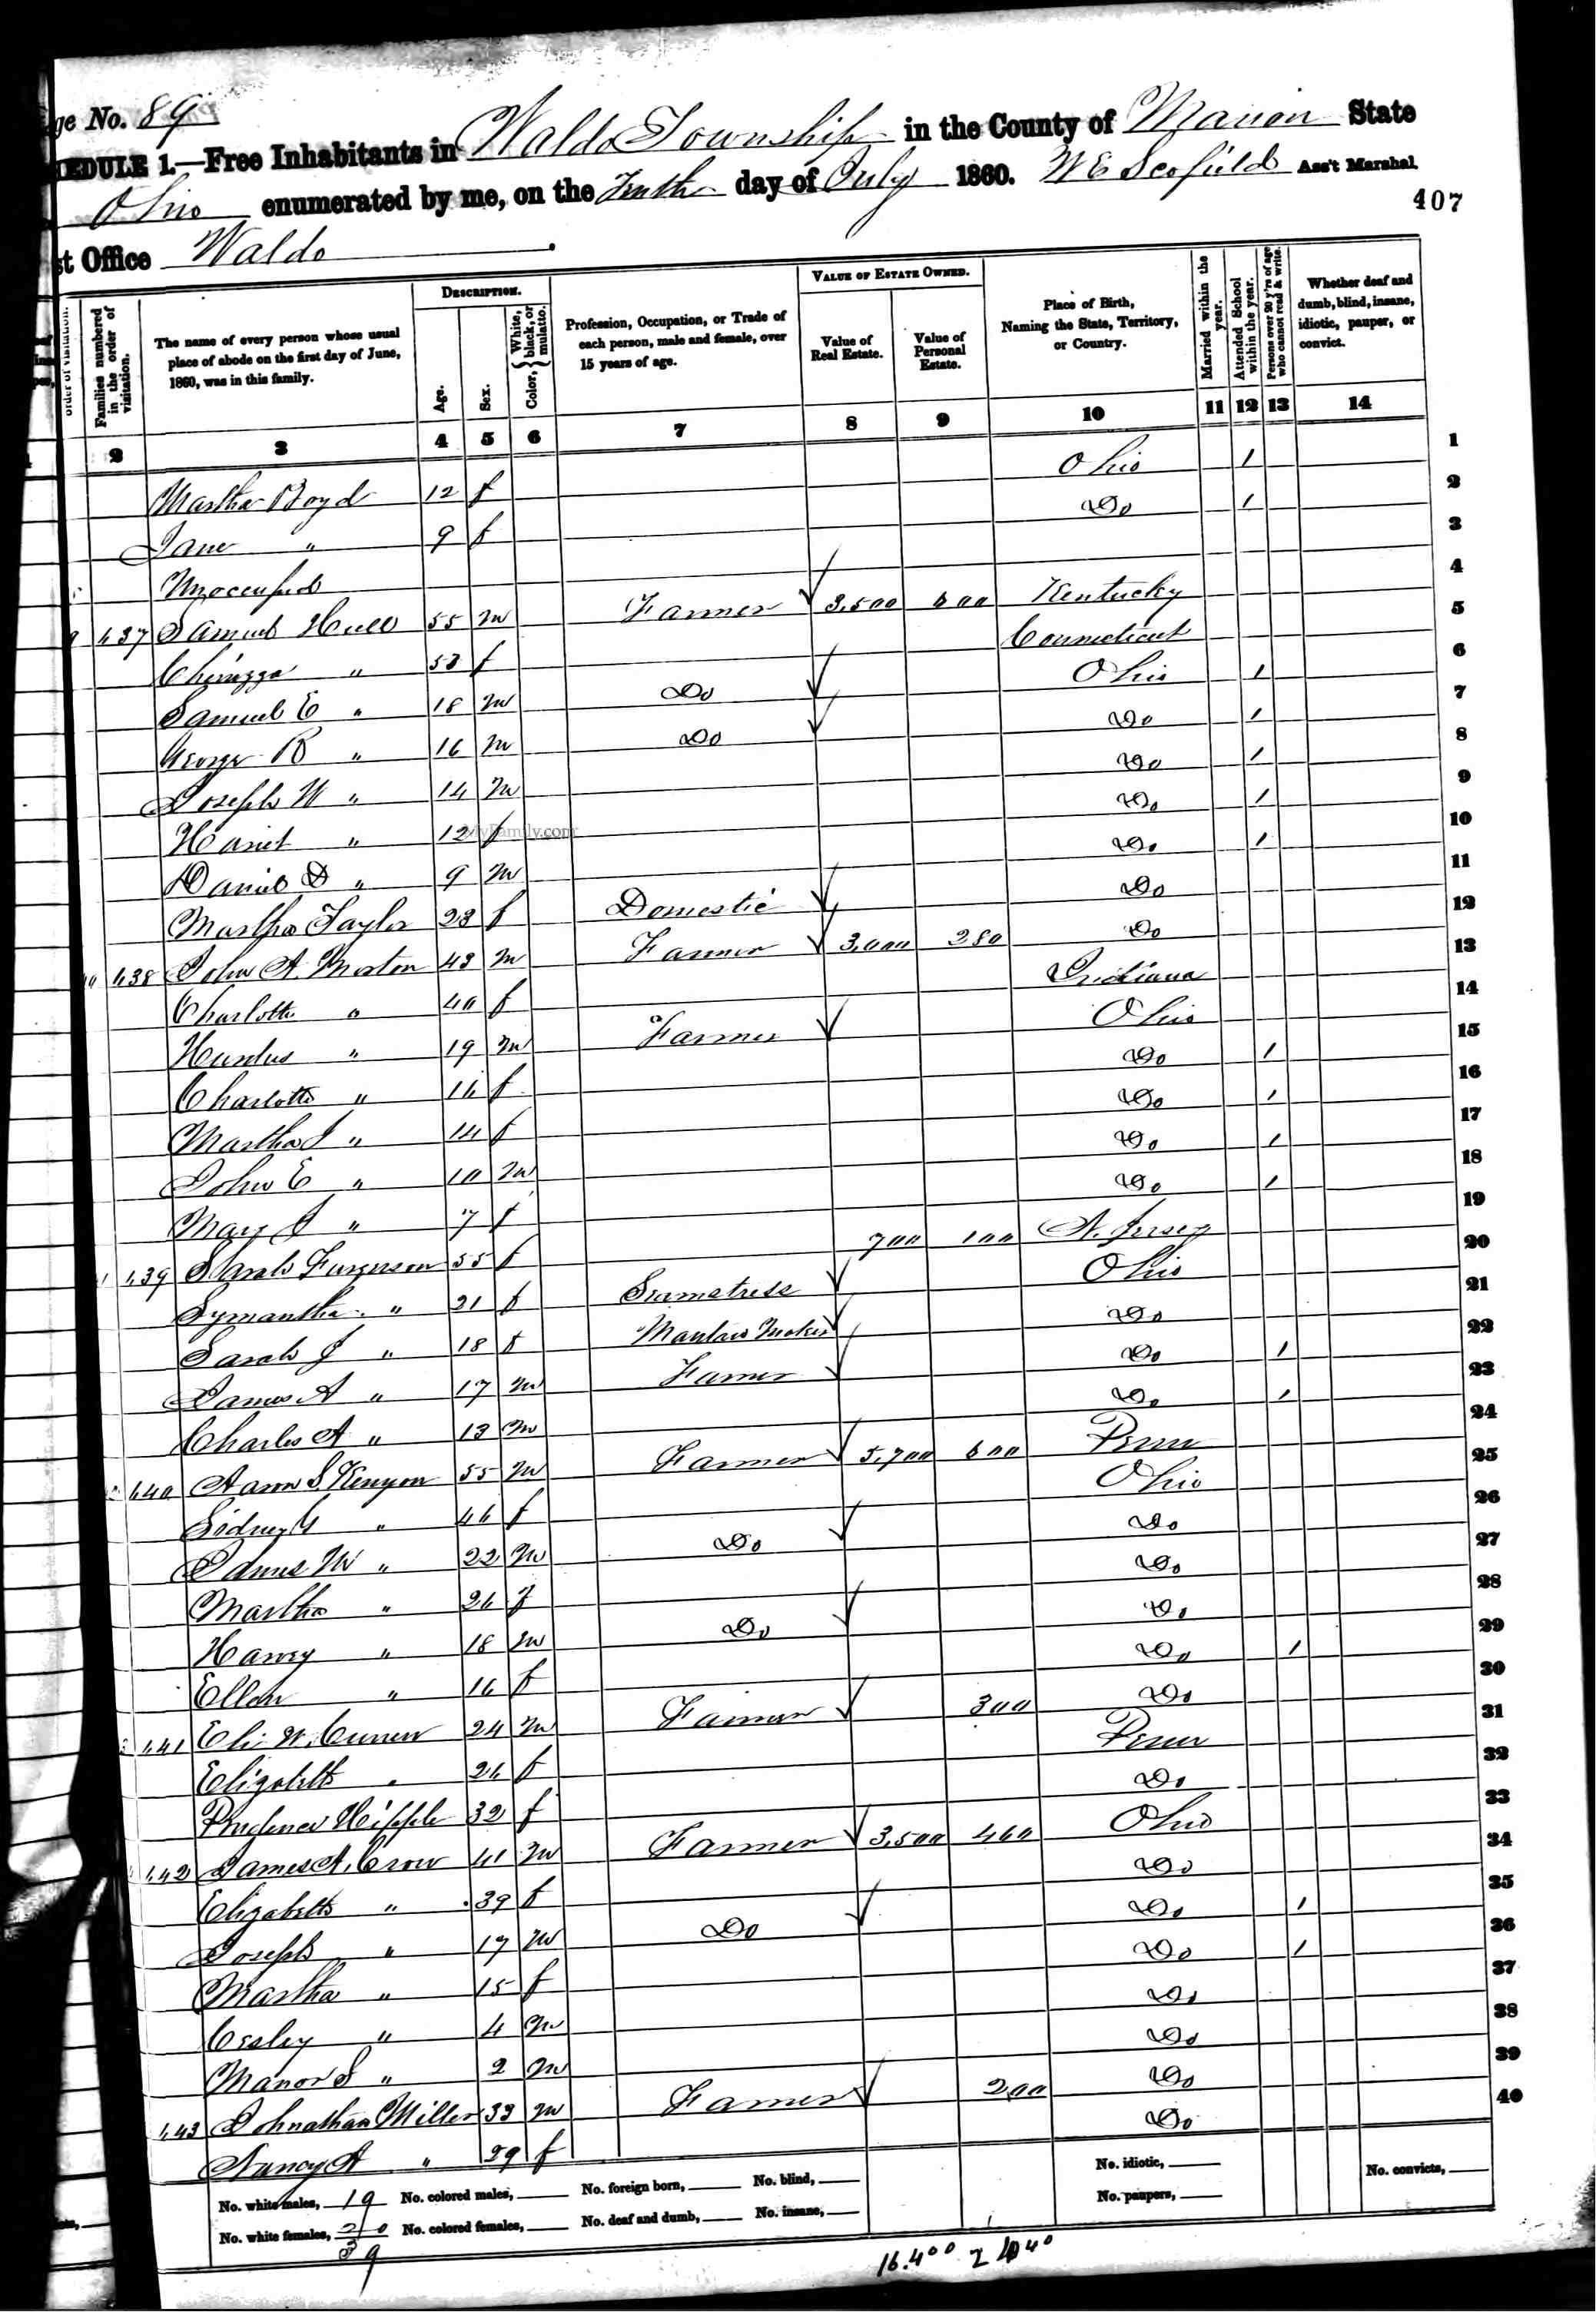 ge No. 89
EDULE 1.—Free Inhabitants in Waldo Township in the County of Marion State
Ohio enumerated by me, on the Tenth day of July 1860. W E Scofield Ass't Marshal.
407
st Office Waldo
order of visitation.
Families numbered in the order of visitation.
The name of every person whose usual place of abode on the first day of June, 1860, was in this family.
DESCRIPTION.
Age.
Sex.
Color, { White, black, or mulatto.
Profession, Occupation, or Trade of each person, male and female, over 15 years of age.
VALUE OF ESTATE OWNED.
Value of Real Estate.
Value of Personal Estate.
Place of Birth, Naming the State, Territory, or Country.
Married within the year.
Attended School within the year.
Persons over 20 y'rs of age who cannot read & write.
Whether deaf and dumb, blind, insane, idiotic, pauper, or convict.
2 3 4 5 6 7 8 9 10 11 12 13 14
Martha Boyd 12 f Ohio 1 1
Jane " 9 f Do 1 2
Unoccupied 3
437 Samuel Hull 55 m Farmer 3,500 600 Kentucky 4
" 53 f Connecticut 5
Samuel E " 18 m Do Ohio 1 6
George R " 16 m Do Do 1 7
Joseph W " 14 m Do 1 8
Hariet " 12 f Do 1 9
MyFamily.com
Daniel D " 9 m Do 1 10
Martha Taylor 23 f Domestic Do 11
438 John A. Morton 43 m Farmer 3,000 280 Do 12
Charlotte " 40 f Indiana 13
" 19 m Farmer Ohio 14
Charlotte " 16 f Do 1 15
Martha J " 14 f Do 1 16
John E " 10 m Do 1 17
Mary J " 7 f Do 1 18
439 Sarah Furgerson 55 f 700 100 N. Jersey 19
Symantha " 21 f Seamstress Ohio 20
Sarah J " 18 f Mantau Maker Do 21
James A " 17 m Farmer Do 1 22
Charles A " 13 m Do 1 23
440 Aaron S Kenyon 55 m Farmer 5,700 600 Penn 24
Sidney G " 46 f Ohio 25
James W " 22 m Do Do 26
Martha " 26 f Do 27
Harvey " 18 m Do Do 28
Ellen " 16 f Do 1 29
441 Eli W. 24 m Farmer 300 Do 30
Elizabeth " 26 f Penn 31
Prudence Hipple 32 f Do 32
442 James A. Crow 41 m Farmer 3,500 460 Ohio 33
Elizabeth " 39 f Do 34
Joseph " 17 m Do Do 1 35
Martha " 15 f Do 1 36
" 4 m Do 37
Manor S " 2 m Do 38
443 Johnathan Miller 33 m Farmer 200 Do 39
Nancy A " 29 f Do 40
No. white males, 19 No. colored males, No. foreign born, No. blind, No. idiotic, No. convicts,
No. white females, 20 No. colored females, No. deaf and dumb, No. insane, No. paupers,
39
16.400